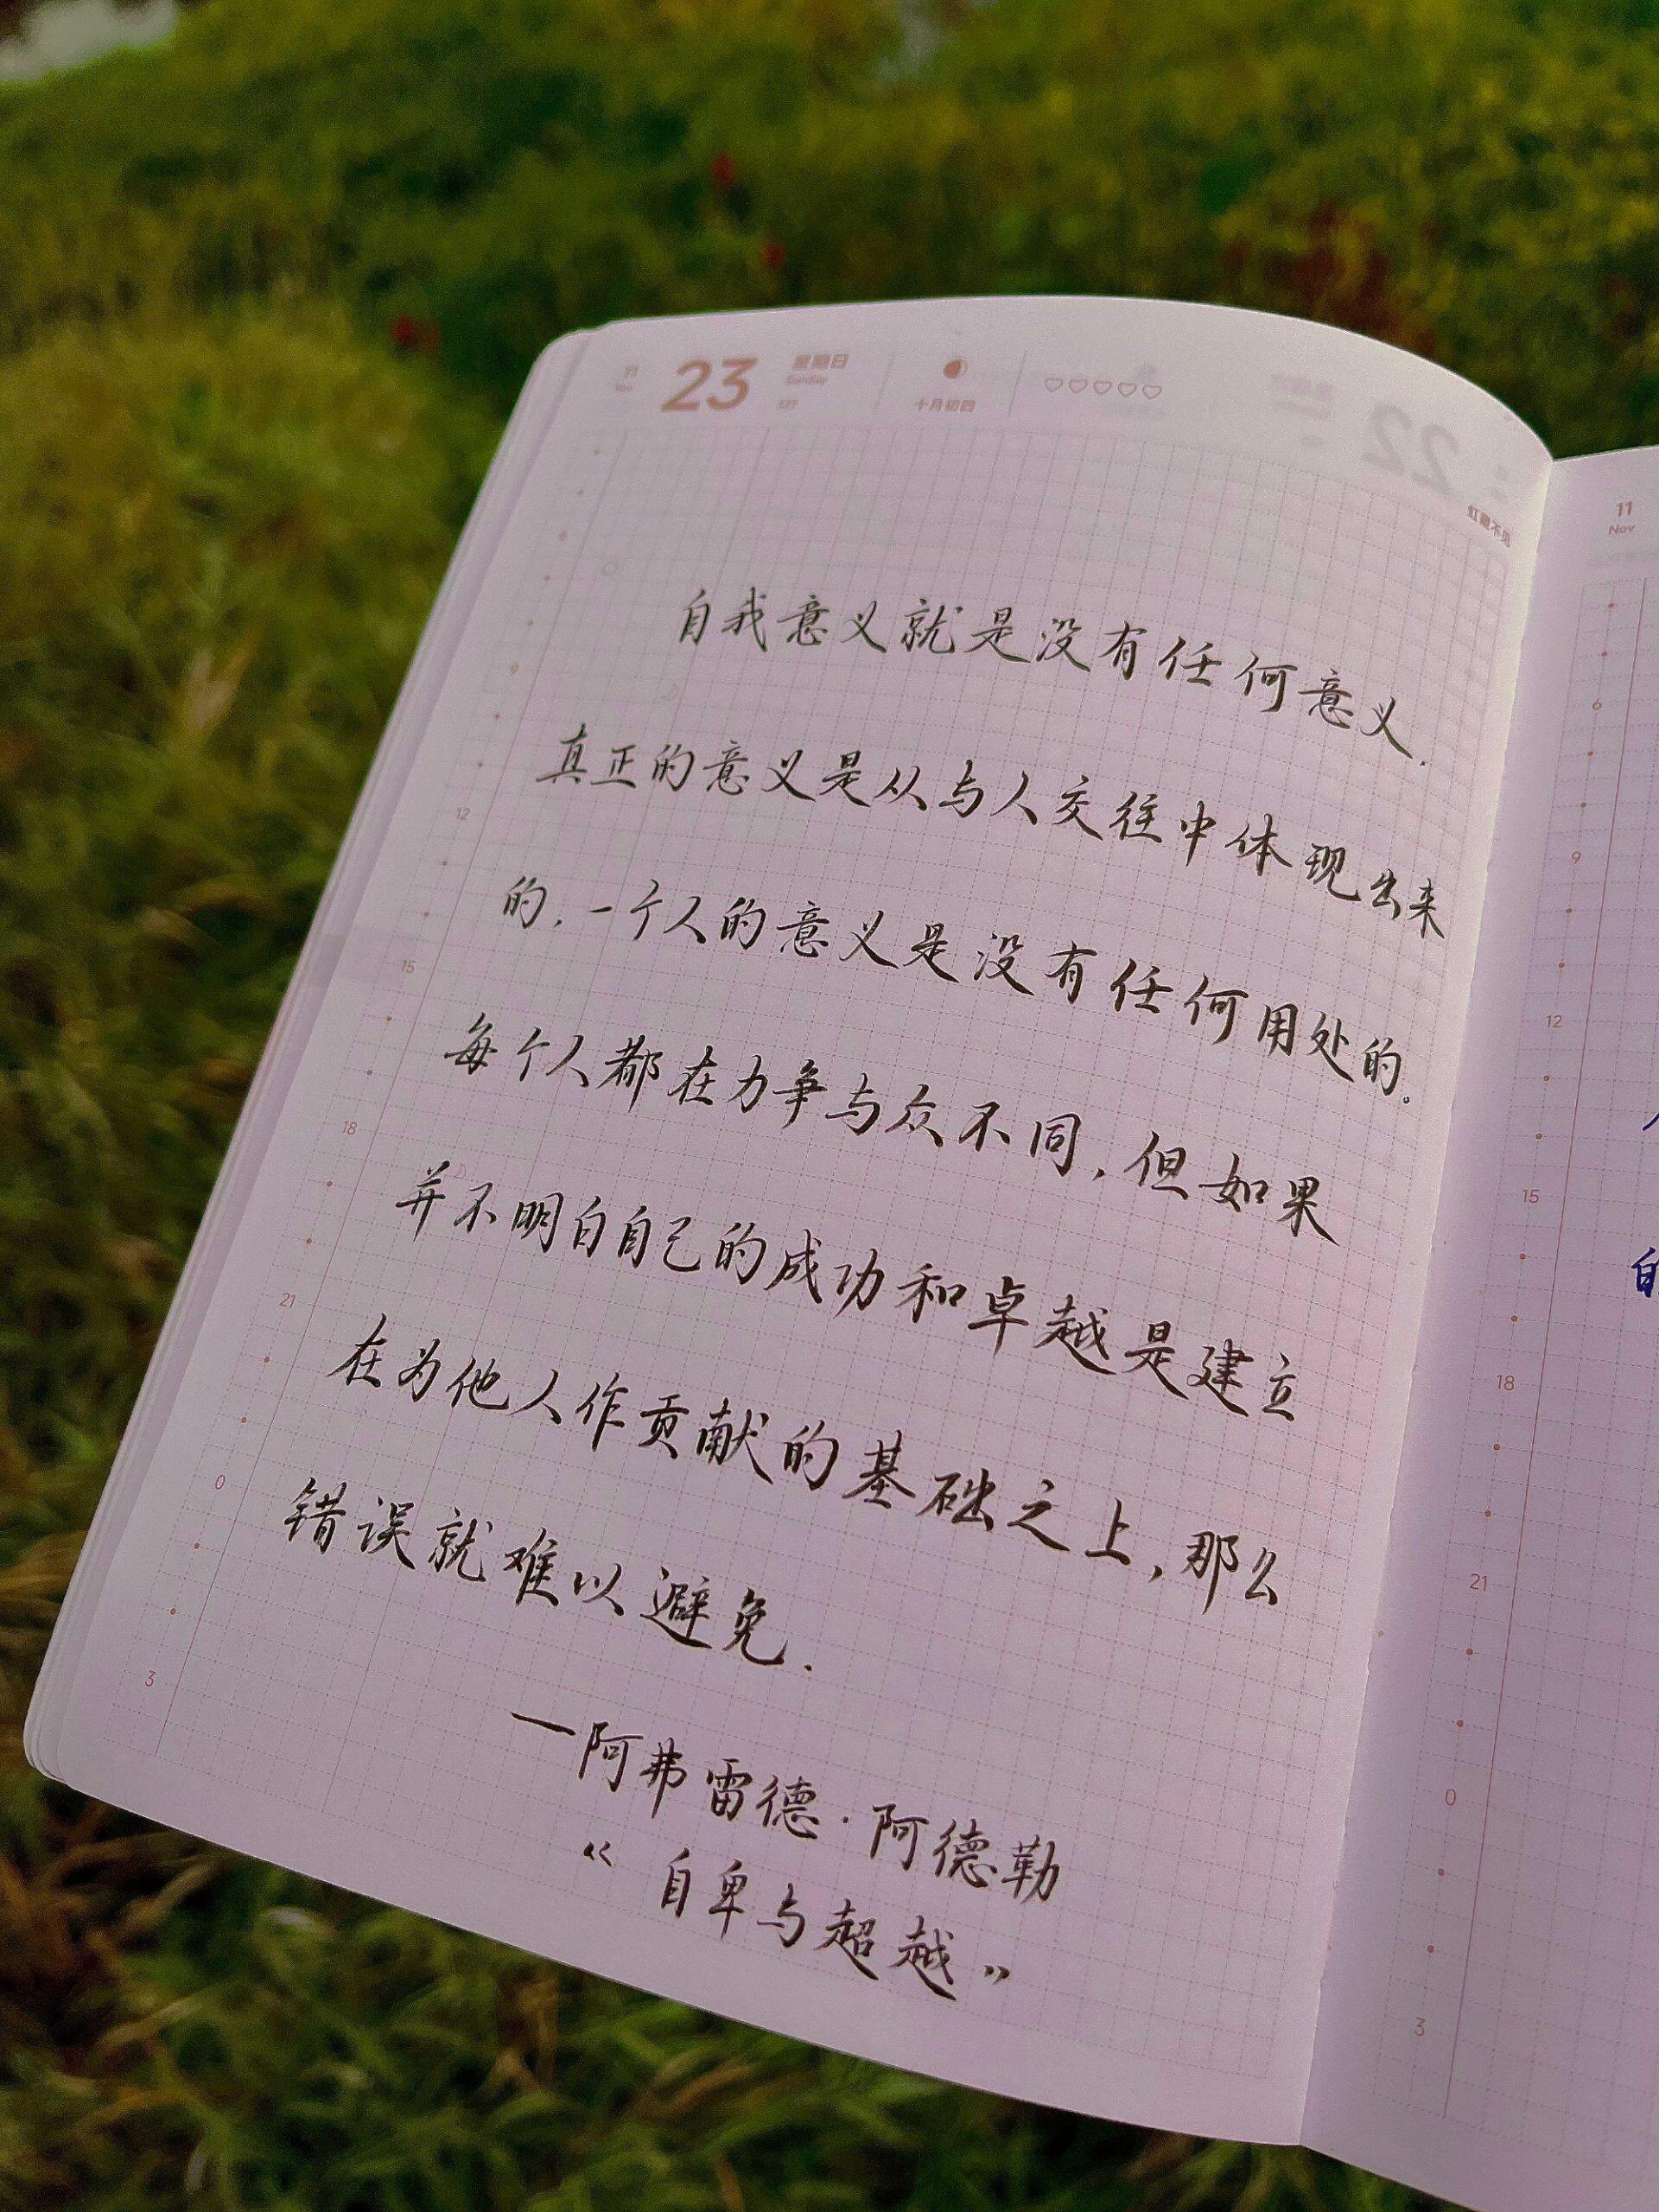 23
星期日
Sunday
327
十月初四
虹藏不见
自我意义就是没有任何意义.
真正的意义是从与人交往中体现出来
的.一个人的意义是没有任何用处的。
每个人都在力争与众不同,但如果
并不明白自己的成功和卓越是建立
在为他人作贡献的基础之上,那么
错误就难以避免.
—阿弗雷德·阿德勒
《自卑与超越》
9
12
15
18
21
0
3
11
Nov
6
9
12
15
18
21
0
3
的